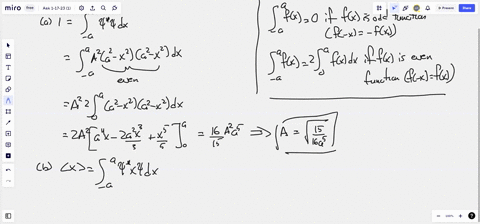 miro
Ask 1-17-23 (1)
Share
(a) 1 = ∫_{-a}^{a} ψ*ψ dx
= ∫_{-a}^{a} A²(a²-x²)(a²-x²)dx
even
= A² 2∫_0^a (a²-x²)(a²-x²)dx
= 2A²[a⁴x - 2a²x³/3 + x⁵/5]_0^a = 16/15 A²a⁵ ⟹ A = √(15/16a⁵)
(b) <x> = ∫_{-a}^{a} ψ*xψ dx
∫_{-a}^{a} f(x) = 0 if f(x) is odd function
(f(-x) = -f(x))
∫_{-a}^{a} f(x) = 2∫_0^a f(x)dx if f(x) is even
function (f(-x) = f(x))